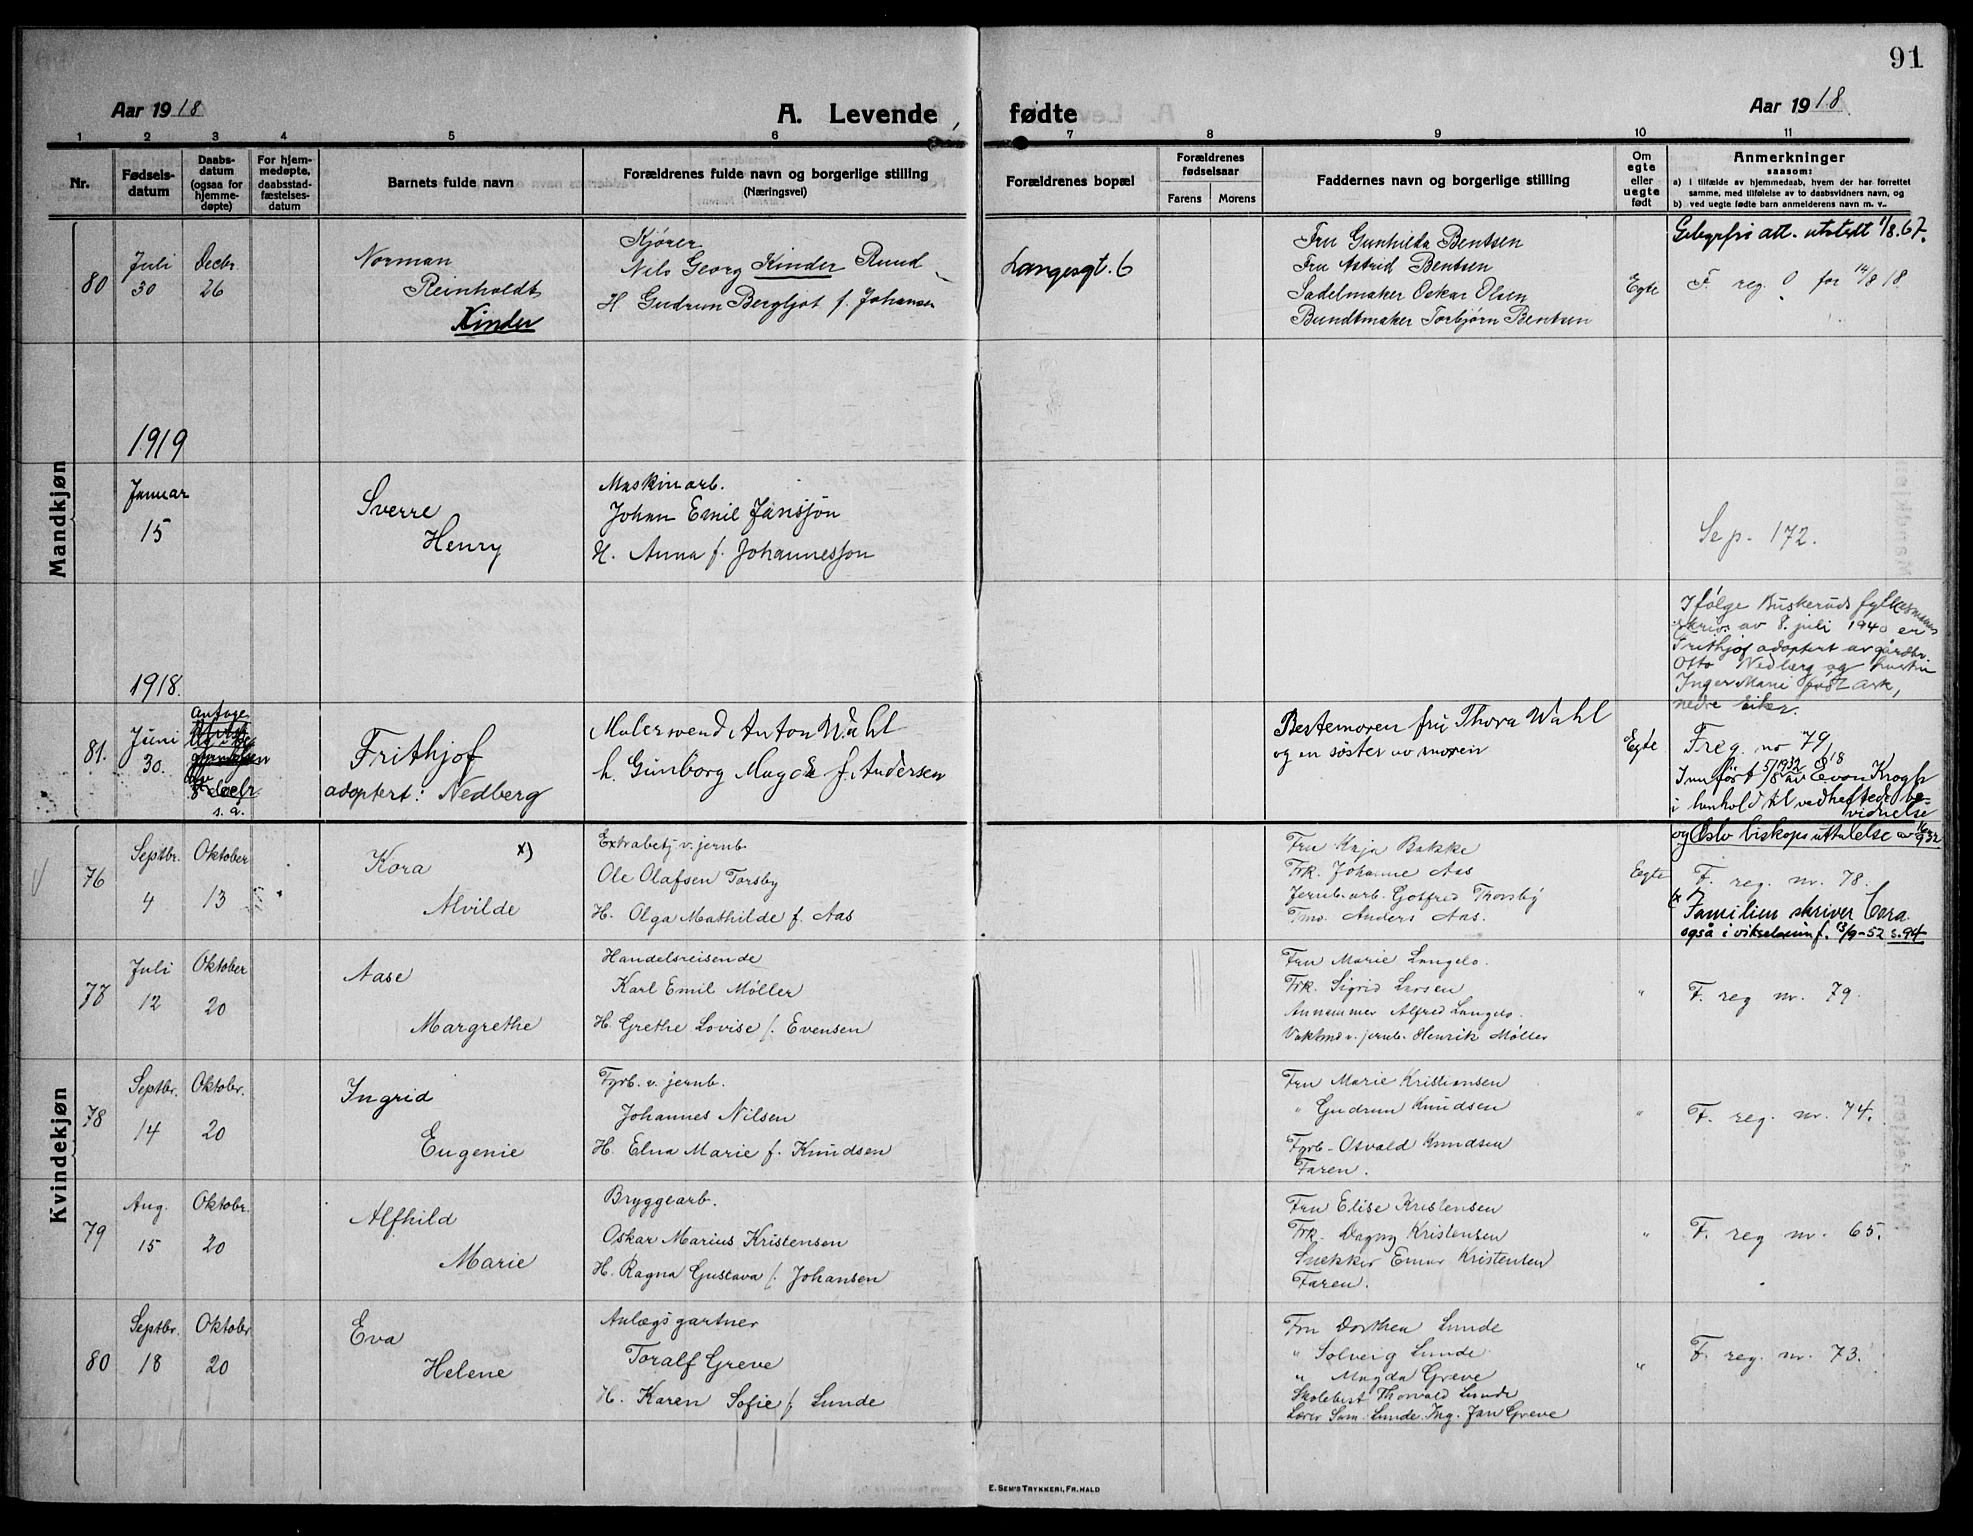 91
Aar 1918
A. Levende fødte
Aar 1918
1 2 3 4 5 6 7 8 9 10 11
Nr.
Fødsels-
datum
Daabs-
datum
(ogsaa for
hjemme-
døpte)
For hjem-
medøpte,
daabsstad-
fæstelses-
datum
Barnets fulde navn
Forældrenes fulde navn og borgerlige stilling
(Næringsvei)
Forældrenes bopæl
Forældrenes
fødselsaar
Farens Morens
Faddernes navn og borgerlige stilling
Om
egte
eller
uegte
født
Anmerkninger
saasom:
a) i tilfælde av hjemmedaab, hvem der har forrettet
samme, med tilføielse av to daabsvidners navn, og
b) ved uegte fødte barn anmelderens navn m. v..
Mandkjøn
80
Juli
30
Decbr.
26
Norman
Reinholdt
Kinder
Kjører
Nils Georg Kinder Ruud
H. Gudrun Bergljot f. Johansen
Langesgt. 6
Fru Gunhilda Bentsen
Fru Astrid Bentsen
Sadelmaker Oskar Olsen
Bundtmaker Torbjørn Bentsen
Egte
Gebyrfri att. utstedt 1/8.67.
F. reg. 0 for 14/8 18.
1919
Januar
15
Sverre
Henry
Maskinarb.
Johan Emil Jansson
H. Anna f. Johannesson
Sep. 172.
1918.
81.
Juni
30.
s. a.
Frithjof
adoptert: Nedberg
Malersvend Anton Wahl
h. Gunborg Magda f. Andersen
Bestemoren fru Thora Wahl
og en søster av moren
Egte
Ifølge Buskeruds fylkesmanns
skriv. av 8. juli 1940 er
Frithjof adoptert av gårdbr.
Otto Nedberg og hustru
Inger Marie født Ark,
nedre Eiker.
F reg. no 79/18
Innført 5/8 1932 av Even Krogh
i henhold til vedheftede be-
vidnelse
og Oslo biskops uttalelse av 1932
Kvindekjøn
76
Septbr.
4
Oktober
13
Kora x)
Alvilde
Extrabetj. v. jernb.
Ole Olafsen Torsby
H. Olga Mathilde f. Aas
Fru Kaja Bakke
Frk. Johanne Aas
Jernb.arb. Gotfred Thorsby
Tms. Anders Aas.
Egte
F. reg. nr. 78.
x Familien skriver Cora
også i vikselsinnf. 13/9-52 s. 94
77
Juli
12
Oktober
20
Aase
Margrethe
Handelsreisende
Karl Emil Møller
H. Grethe Lovise f. Evensen
Fru Marie Langelo.
Frk. Sigrid Larsen
Annammer Alfred Langelo.
Vaktmd v. jernb. Henrik Møller
"
F. reg nr. 79.
78
Septbr.
14
Oktobr.
20
Ingrid
Eugenie
Fyrb. v. jernb.
Johannes Nilsen
H. Elna Marie f. Knudsen
Fru Marie Kristiansen
" Gudrun Knudsen
Fyrb. Osvald Knudsen
Faren.
"
F. reg. nr. 74.
79
Aug.
15
Oktobr.
20
Alfhild
Marie
Bryggearb.
Oskar Marius Kristensen
H. Ragna Gustava f. Johansen
Fru Elise Kristensen
Frk. Dagny Kristensen
Snekker Einar Kristensen
Faren.
"
F. reg nr. 65.
80
Septbr.
18
Oktobr
20
Eva
Helene
Anlægsgartner
Toralf Greve
H. Karen Sofie f. Lunde
Fru Dorthea Lunde
" Solveig Lunde
" Magda Greve
Skolebest Thorvald Lunde
Lærer Sam. Lunde. Ing. Jan Greve
"
F. reg. nr. 73.
E. SEM'S TRYKKERI, FR.HALD